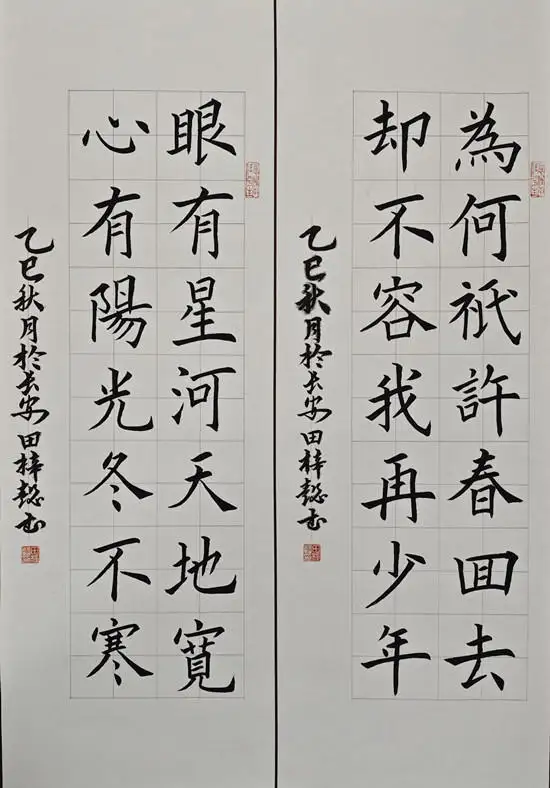 為何祇許春回去
却不容我再少年
乙巳秋月於长安田梓懿书
眼有星河天地寬
心有陽光冬不寒
乙巳秋月於长安田梓懿书